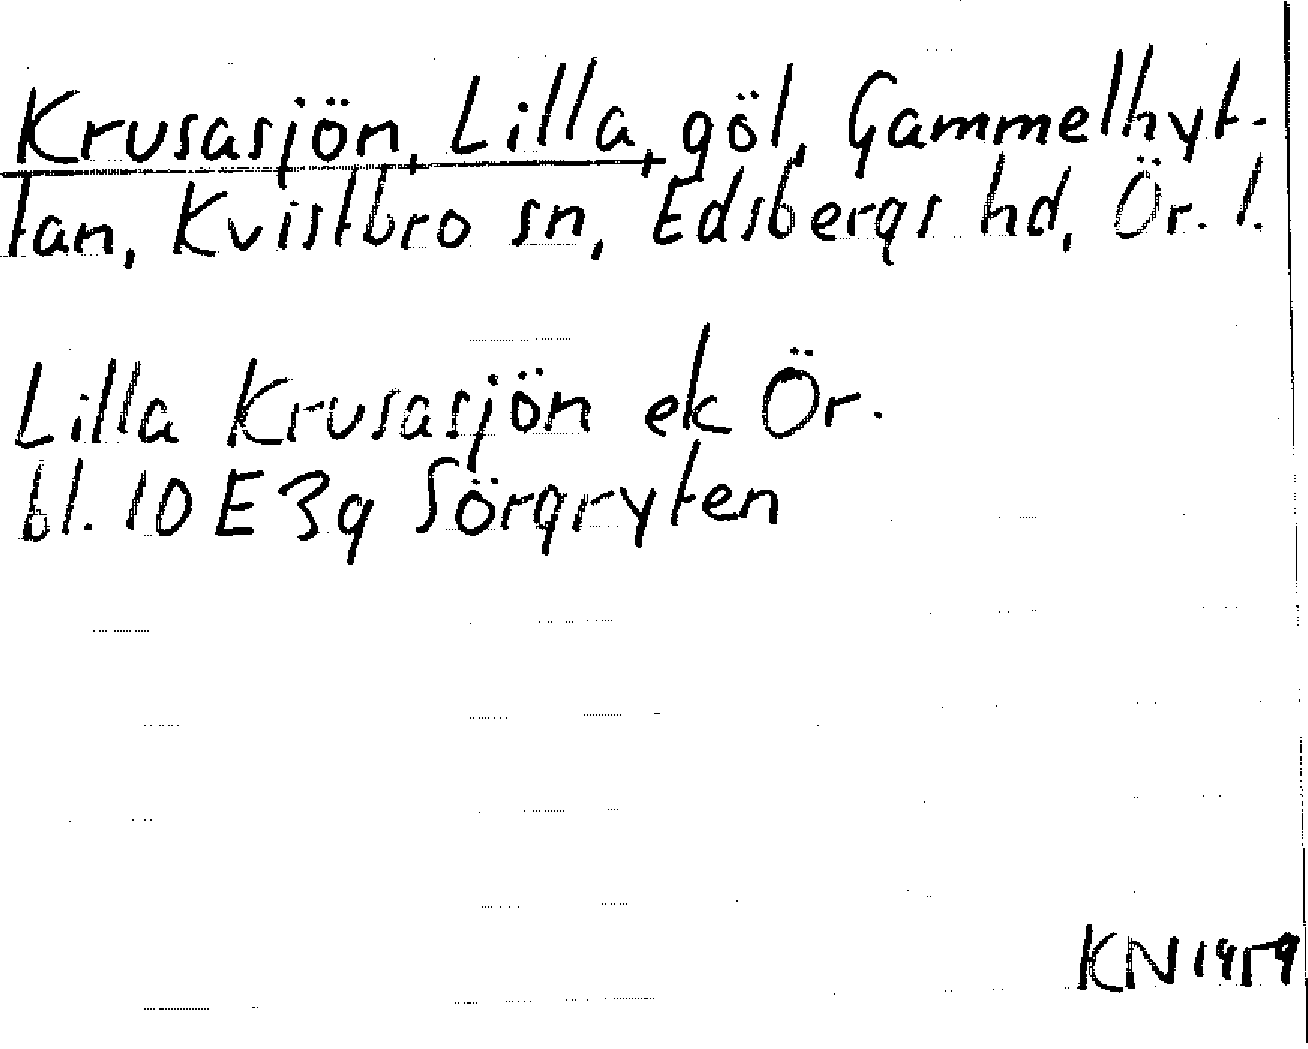 Krusasjön, Lilla, göl, Gammelhyt-
tan, Kvistbro sn, Edsbergs hd, Ör. l.
Lilla Krusasjön ek Ör.
bl. 10 E 3g Sörgryten
KN 1959